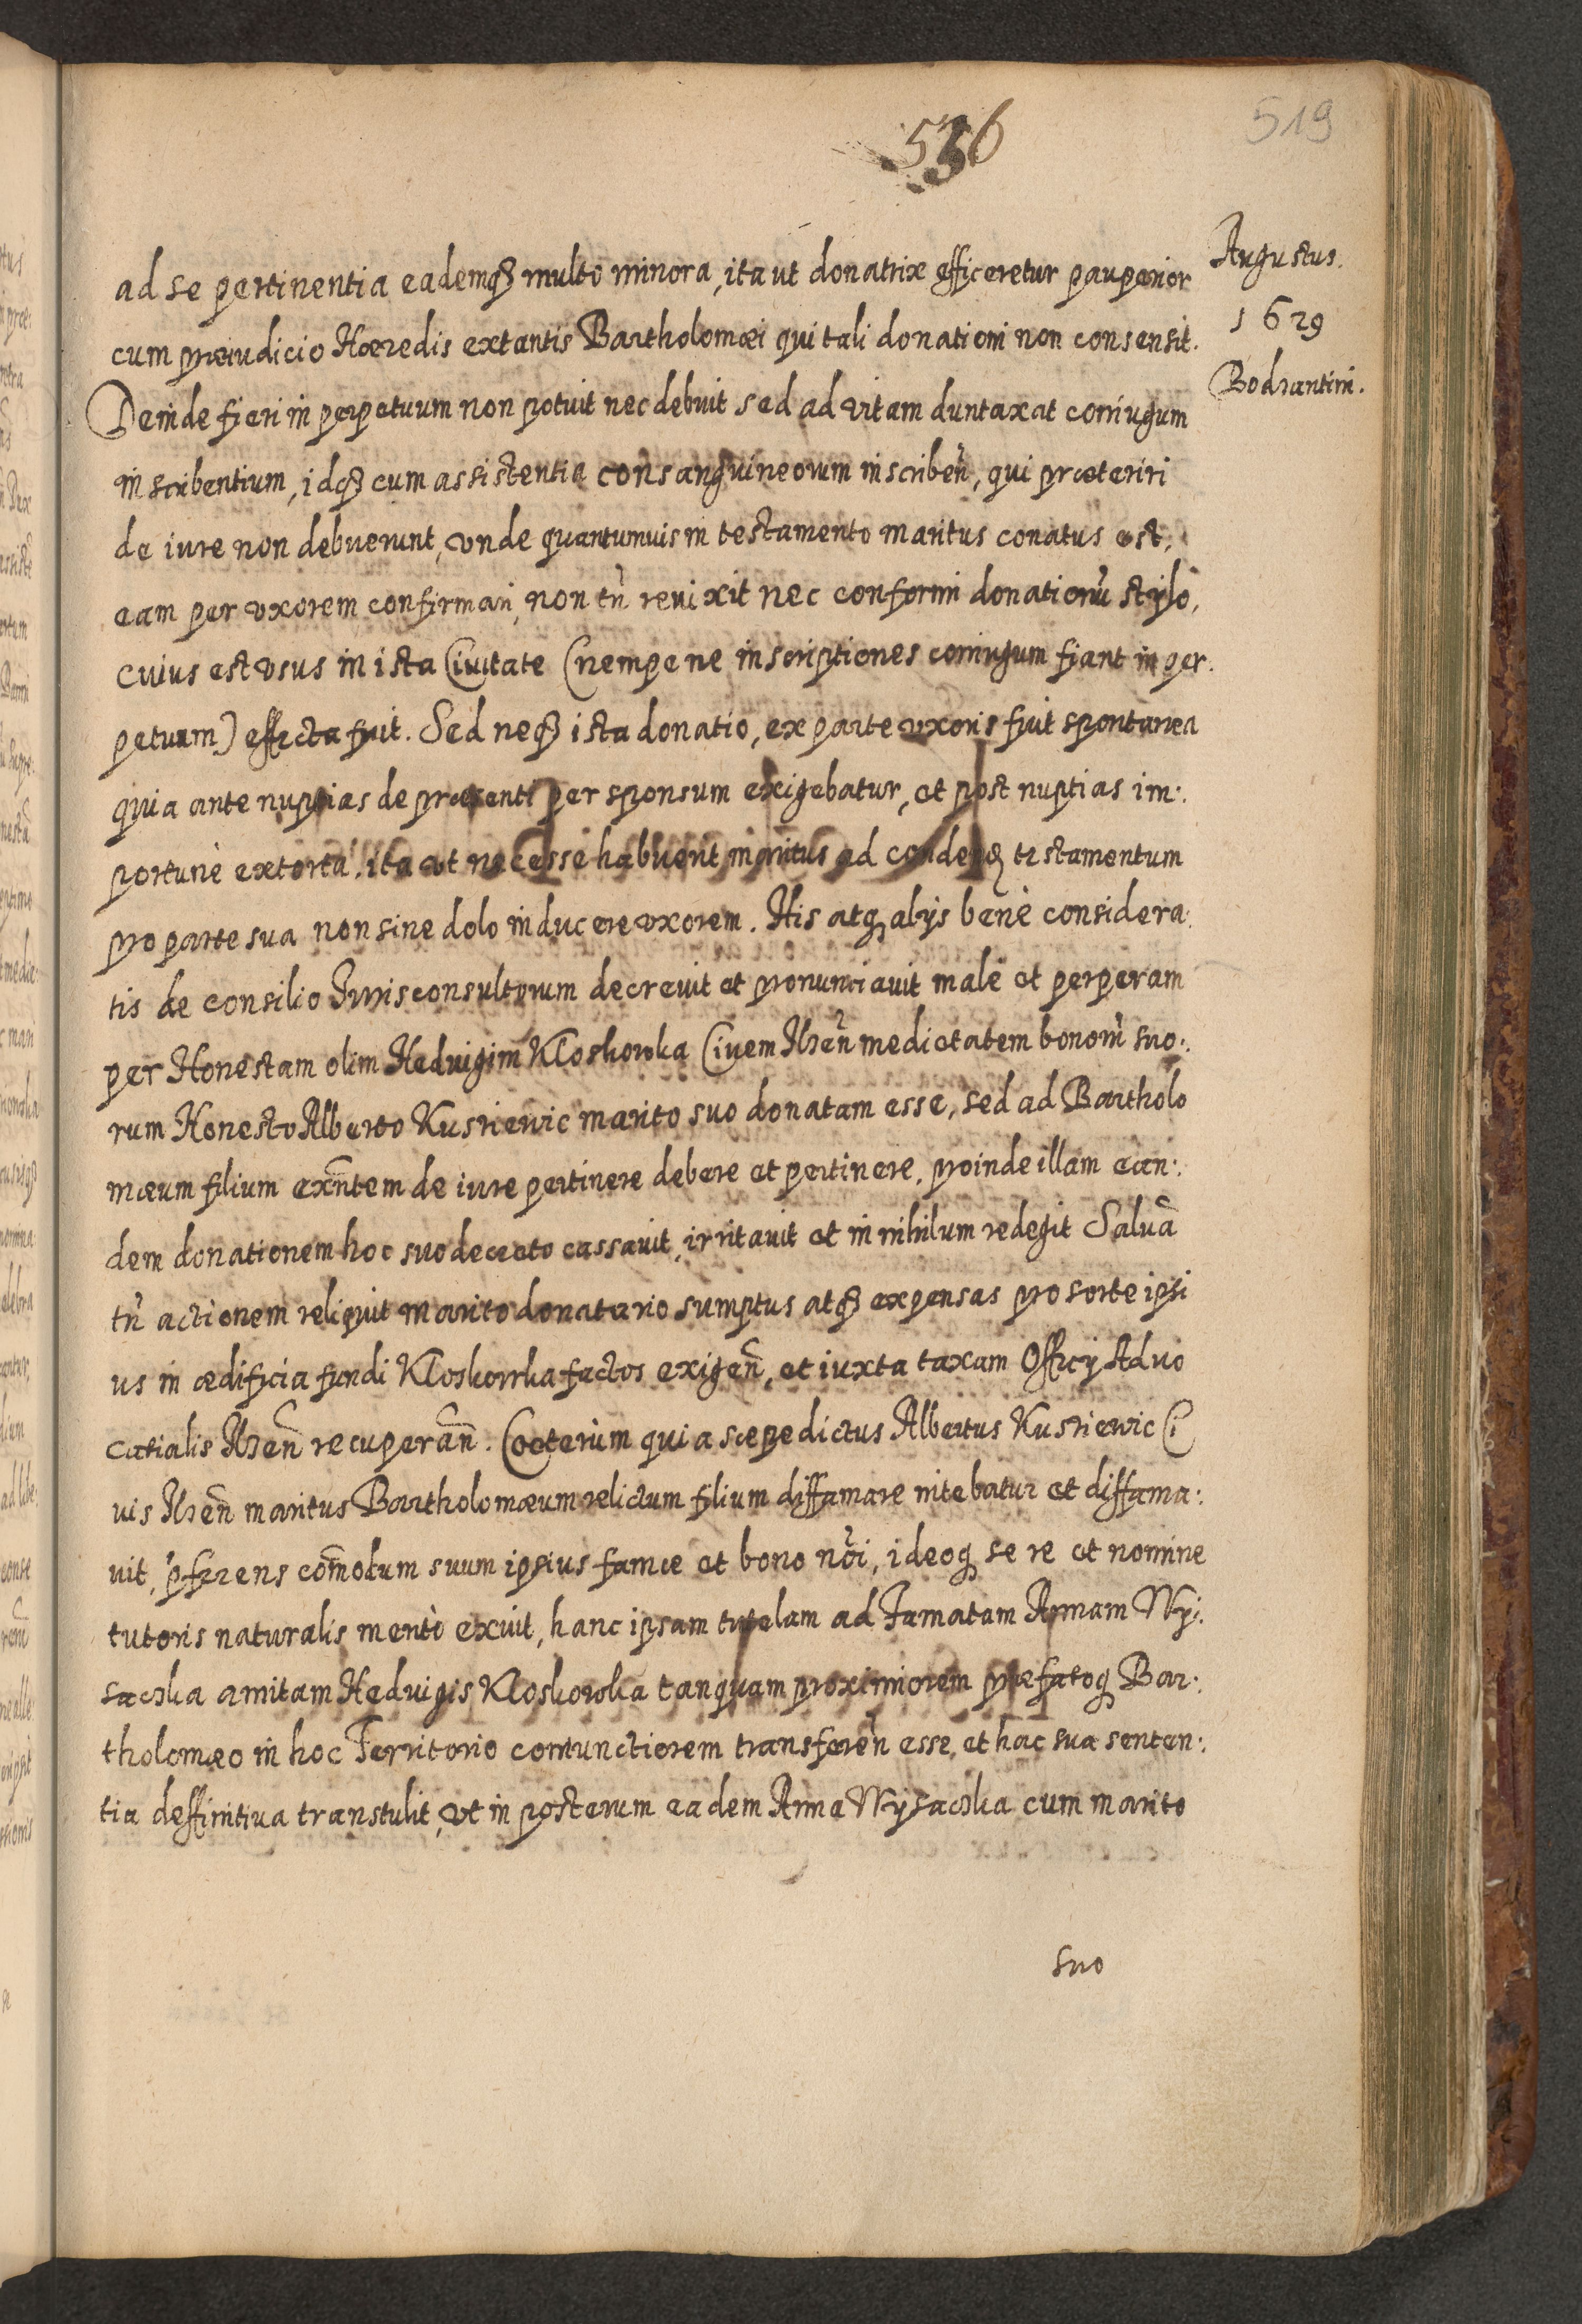 536
519
Augustus.
1629
Bodzantini.
ad se pertinentia eademq₃ multo minora, ita ut donatrix efficeretur pauperior
cum præiudicio Hæredis extantis Bartholomæi qui tali donationi non consensit.
Deinde fieri in perpetuum non potuit nec debuit sed ad vitam duntaxat coniugum
inscribentium, idq₃ cum assistentia consanguineorum inscribeñ, qui præteriri
de iure non debuerunt, vnde quantumuis in testamento maritus conatus est,
eam per vxorem confirmari, non tñ reuixit nec conformi donationũ stylo,
cuius est vsus in ista Ciuitate (nempe ne inscriptiones coniugum fiant in per
petuum) effecta fuit. Sed neq₃ ista donatio, ex parte vxoris fuit spontanea
quia ante nuptias de præsenti per sponsum exigebatur, et post nuptias im:
portunè extorta, ita vt necesse habuerit maritus ad condenđ testamentum
pro parte sua non sine dolo inducere vxorem. His atq₃ alijs benè considera
tis de consilio Jurisconsultorum decreuit et pronunciauit malè et perperam
per Honestam olim Heduigim Kloskowka Ciuem Ilzeñ medietatem bonorũ suo:
rum Honesto Alberto Kusniewic marito suo donatam esse, sed ad Bartholo
mæum filium exñtem de iure pertinere debere et pertinere, proinde illam ean:
dem donationem hoc suo decreto cassauit, irritauit et in nihilum redegit Saluã
tñ actionem reliquit marito donatario sumptus atq₃ expensas pro sorte ipsi
us in ædificia fundi Kloskowka factos exigeñ, et iuxta taxam Officij Aduo
catialis Ilzeñ recuperañ. Cæterùm quia sæpedictus Albertus Kusniewic Ci
uis Ilzeñ maritus Bartholomæum relictum filium diffamare nitebatur et diffama:
uit, p̃ferens com̃odum suum ipsius famæ et bono nõi, ideoq₃ se re et nomine
tutoris naturalis meritò exuit, hanc ipsam tutelam ad Famatam Annam Wy:
sacka amitam Heduigis Kloskowka tanquam proximiorem præfatoq₃ Bar:
tholomæo in hoc Territorio coniunctiorem transfereñ esse, et hac sua senten:
tia deffinitiua transtulit, vt in posterum eadem Anna Wysacka cum marito
suo